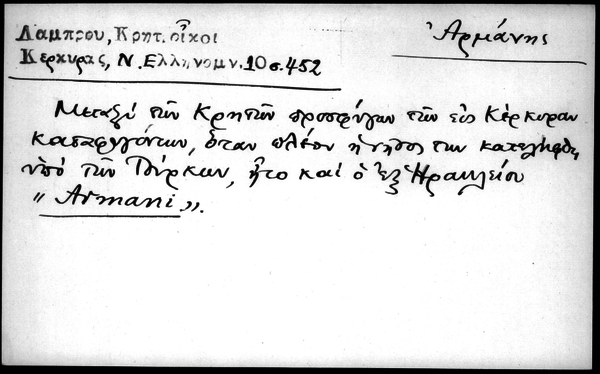 Λαμπρου, Κρητ. οἶκοι
Κερκυρας, Ν. Ελληνομν. 10 σ. 452
Ἀρμάνης
Μεταξύ τῶν Κρητῶν προσφύγων τῶν εἰς Κέρκυραν
καταφυγόντων, ὅταν πλέον ἡ νῆσος των κατελήφθη
ὑπό τῶν Τούρκων, ἦτο καί ὁ ἐξ Ἡρακλείου
"Armani".